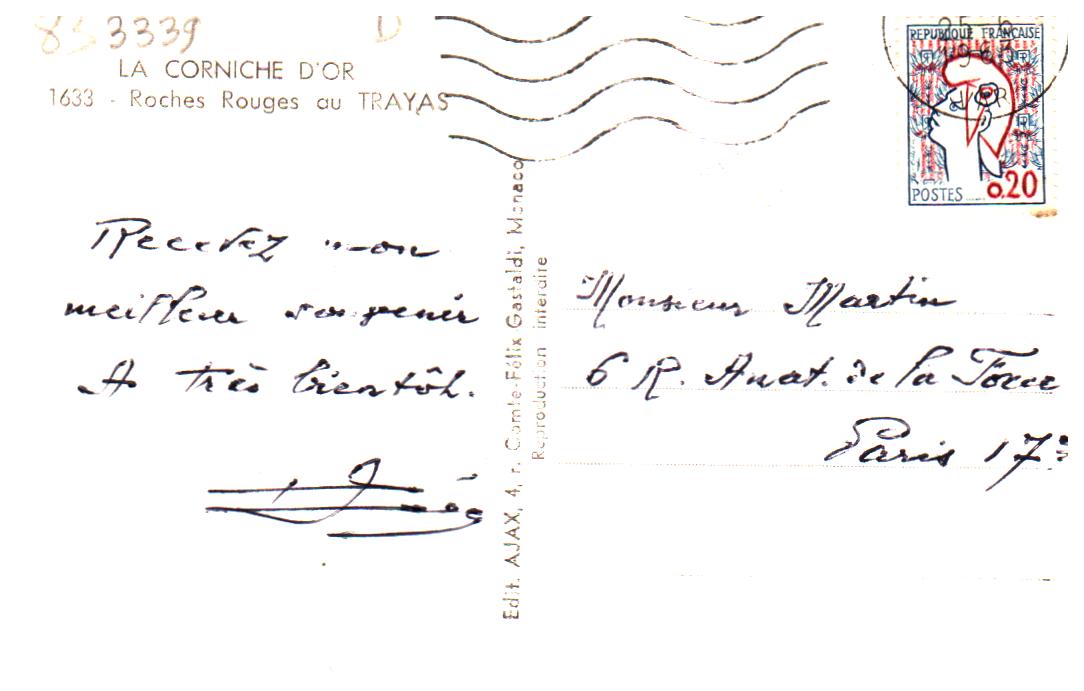 3339
LA CORNICHE D'OR
1633 - Roches Rouges au TRAYAS
Recevez mon
meilleur souvenir
A très bientôt.
Edit. AJAX, 4, r. Comte-Félix Gastaldi, Monaco
Reproduction interdite
25-6
1963
VAR
REPUBLIQUE FRANÇAISE
POSTES
0.20
Monsieur Martin
6 R. Anat. de la Forge
Paris 17e